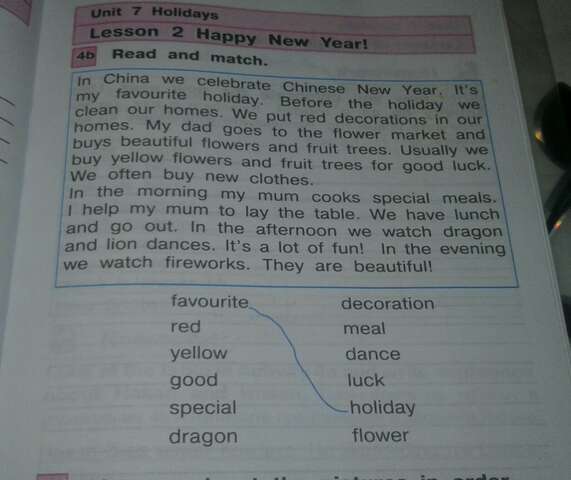 Unit 7 Holidays
Lesson 2 Happy New Year!
4b Read and match.
In China we celebrate Chinese New Year. It's
my favourite holiday. Before the holiday we
clean our homes. We put red decorations in our
homes. My dad goes to the flower market and
buys beautiful flowers and fruit trees. Usually we
buy yellow flowers and fruit trees for good luck.
We often buy new clothes.
In the morning my mum cooks special meals.
I help my mum to lay the table. We have lunch
and go out. In the afternoon we watch dragon
and lion dances. It's a lot of fun! In the evening
we watch fireworks. They are beautiful!
favourite decoration
red meal
yellow dance
good luck
special holiday
dragon flower
the pictures in order